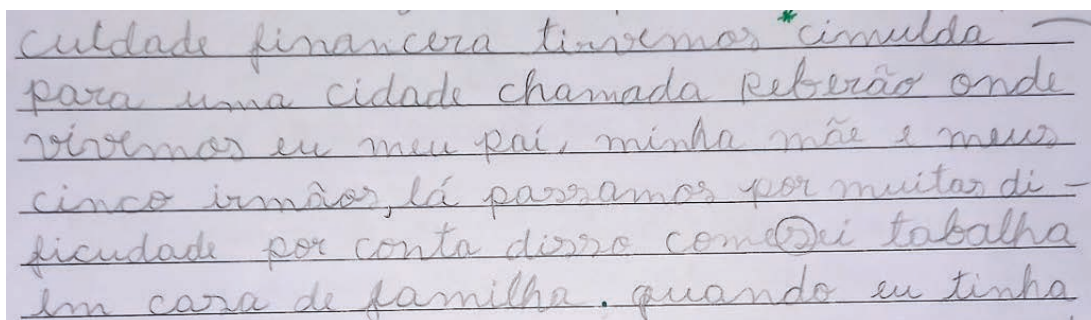 culdade financera tinvemos *cimulda -
para uma cidade chamada Reberão onde
vivemos eu meu pai, minha mãe e meus
cinco irmãos, lá passamos por muitas di -
ficudade por conta disso comesei tabalha
em casa de familha. quando eu tinha